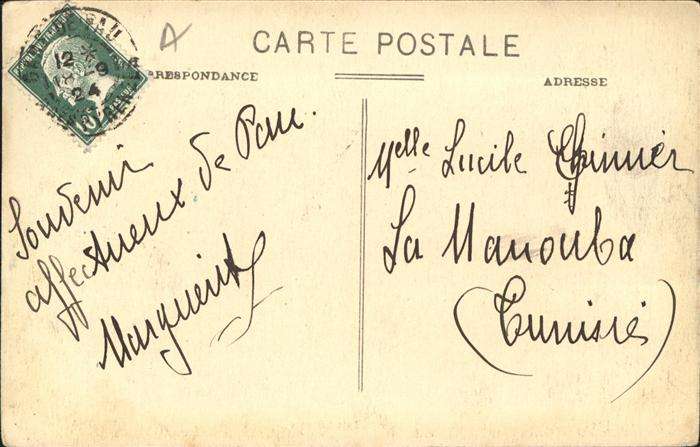 CARTE POSTALE
CORRESPONDANCE
ADRESSE
PAU
12 *
18 - 9
24
Souvenir
affectueux de Pau.
Marguerite
Melle Lucile
La Manouba
(Tunisie)